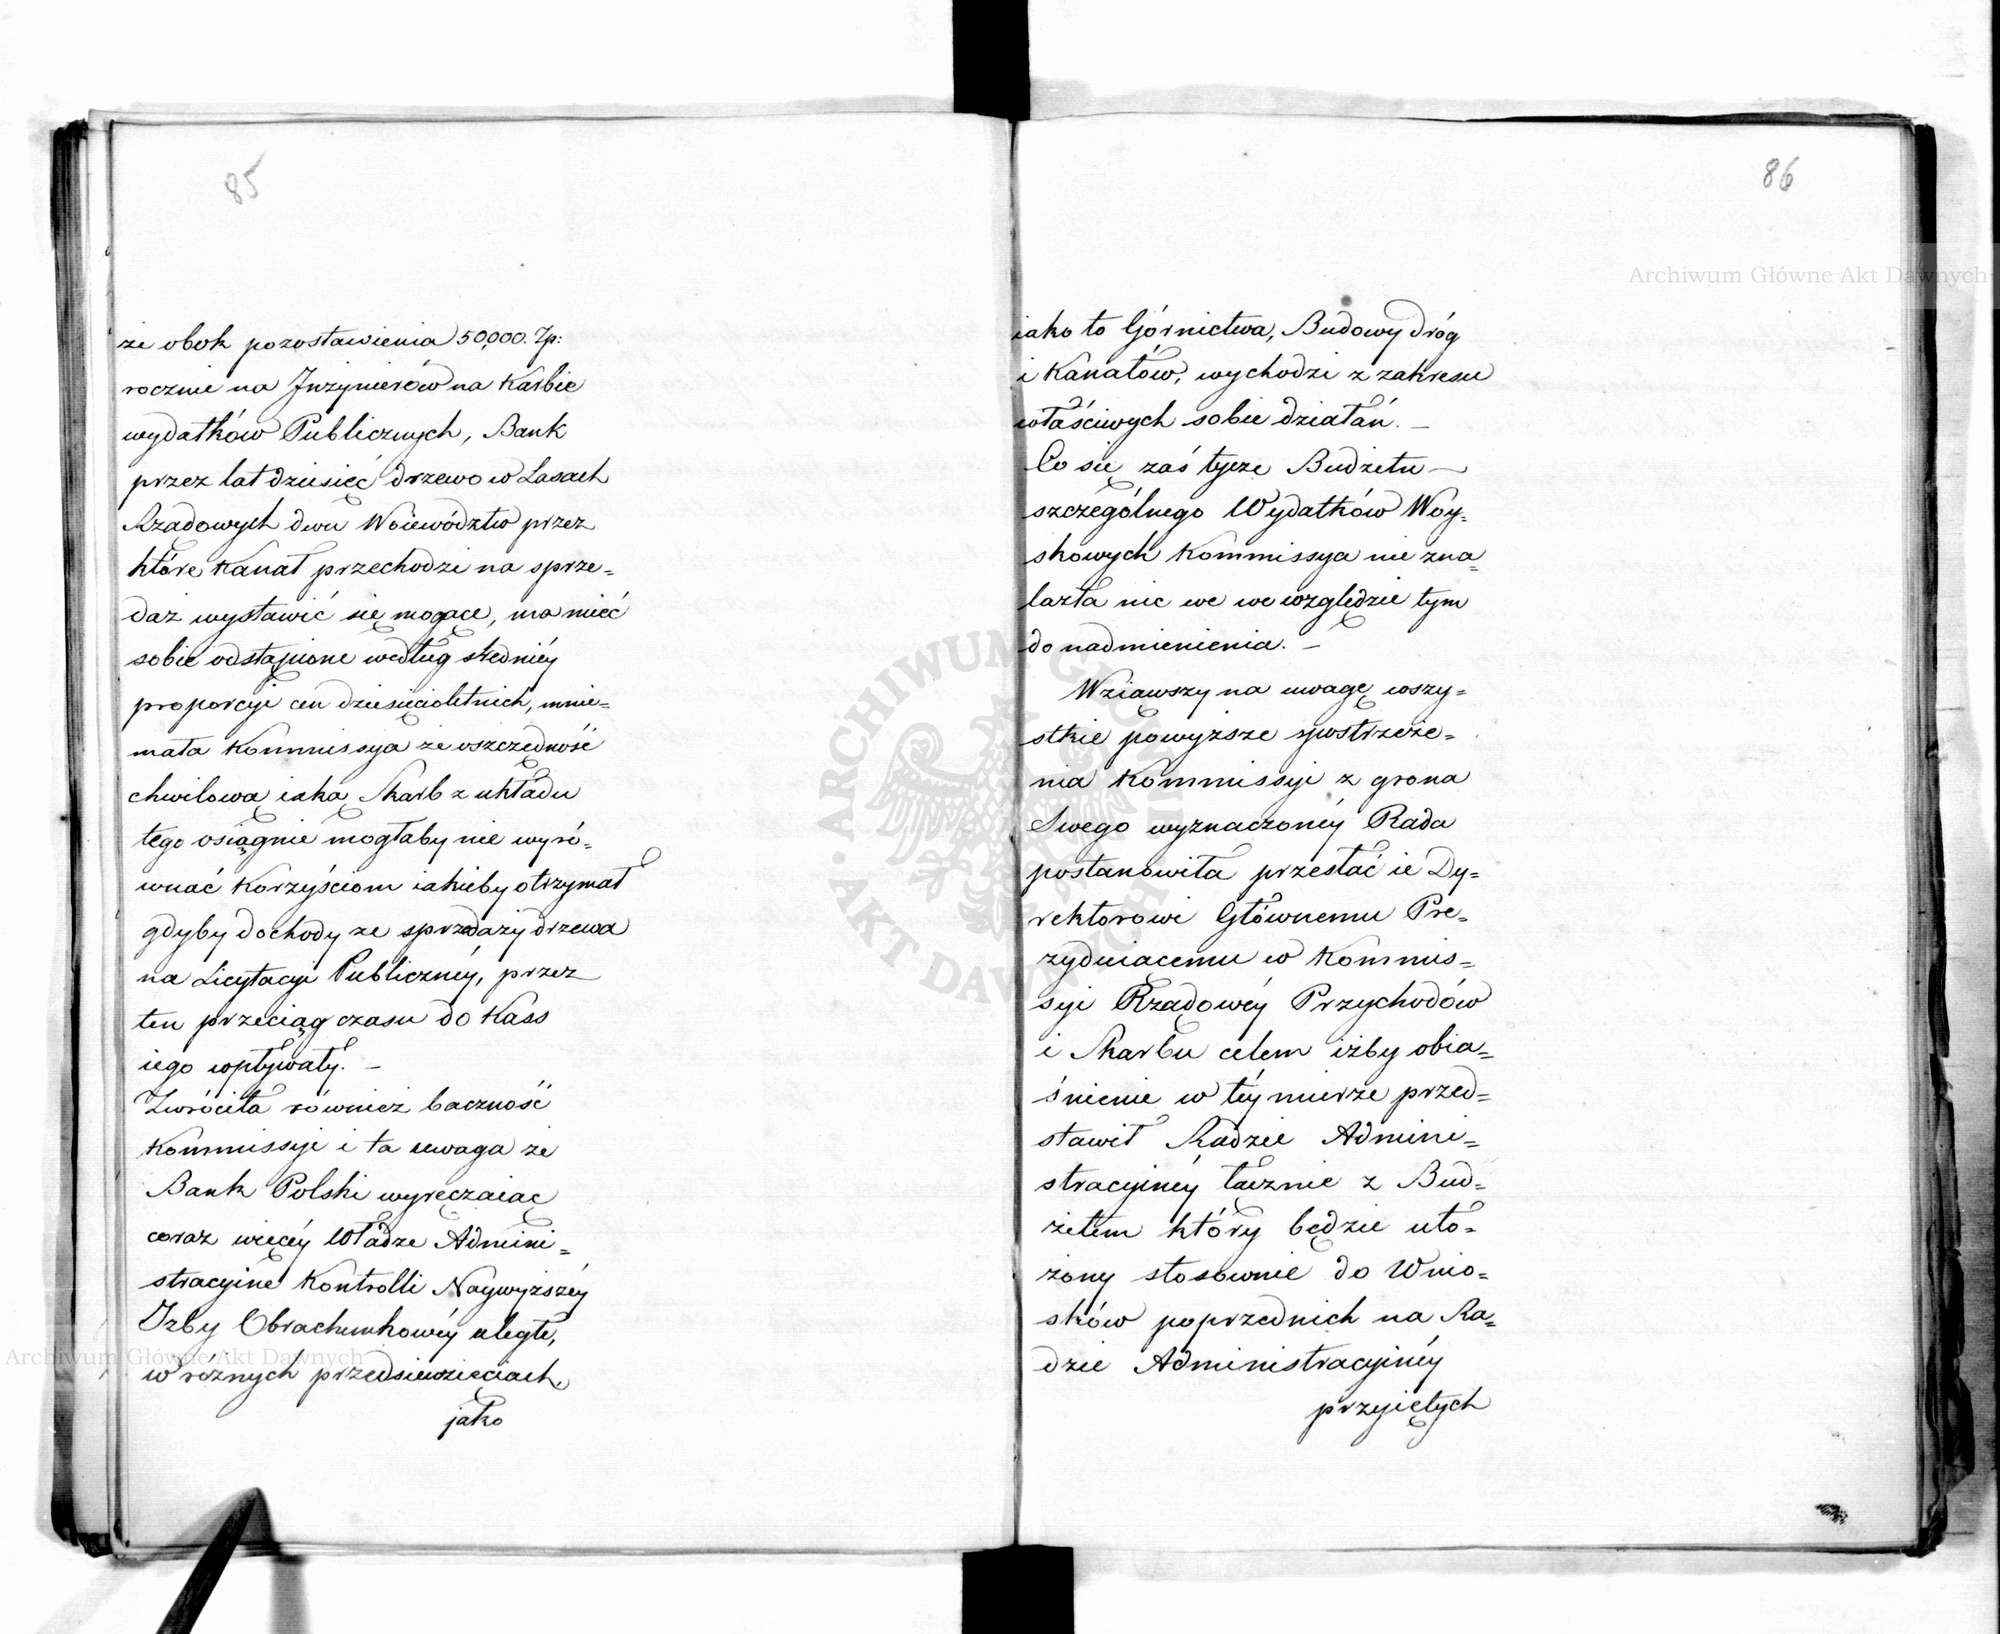 85
że obok pozostawienia 50,000. Zp:
rocznie na Jnżynierów na Karbie
wydatków Publicznych, Bank
przez lat dziesięć drzewo w Lasach
Rządowych dwu Woiewództw przez
które Kanał przechodzi na sprze=
daż wystawić się mogące, ma mieć
sobie odstąpione według średniéy
proporcyi cen dziesięcioletnich, mnie=
mała Kommissya że oszczędność
chwilowa iaką Skarb z układu
tego osiągnie mogłaby nie wyró=
wnać Korzyściom iakieby otrzymał
gdyby dochody ze sprzedaży drzewa
na Licytacyi Publicznéy, przez
ten przeciąg czasu do Kass
iego wpływały. –
Zwróciła również baczność
Kommissyi i ta uwaga że
Bank Polski wyręczaiąc
coraz więcéy Władze Admini=
stracyine Kontrolli Naywyższéy
Jzby Obrachunkowéy uległe,
w różnych przedsięwzięciach,
jako
86
iako to Górnictwa, Budowy dróg
i Kanałów, wychodzi z zakresu
właściwych sobie działań. –
Co się zaś tycze Budżetu –
szczególnego Wydatków Woy=
skowych Kommissya nie zna=
lazła nic we we względzie tym
do nadmienienia. –
Wziąwszy na uwagę wszy=
stkie powyższe spostrzeże=
nia Kommissyi z grona
Swego wyznaczonéy Rada
postanowiła przesłać ie Dy=
rektorowi Głównemu Pre=
zyduiącemu w Kommis=
syi Rządowéy Przychodów
i Skarbu celem iżby obia=
śnienie w téy mierze przed=
stawił Radzie Admini=
stracyinéy łącznie z Bud=
żetem który będzie uło=
żony stosownie do Wnio=
sków poprzednich na Ra=
dzie Administracyinéy
przyiętych
Archiwum Główne Akt Dawnych
ARCHIWUM GŁÓWNE AKT DAWNYCH
Archiwum Główne Akt Dawnych